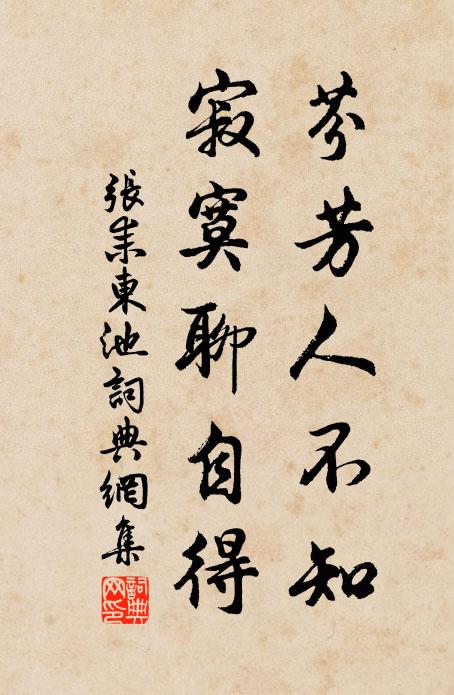 芬芳人不知
寂寞聊自得
張耒東池詞典網集
詞典網印